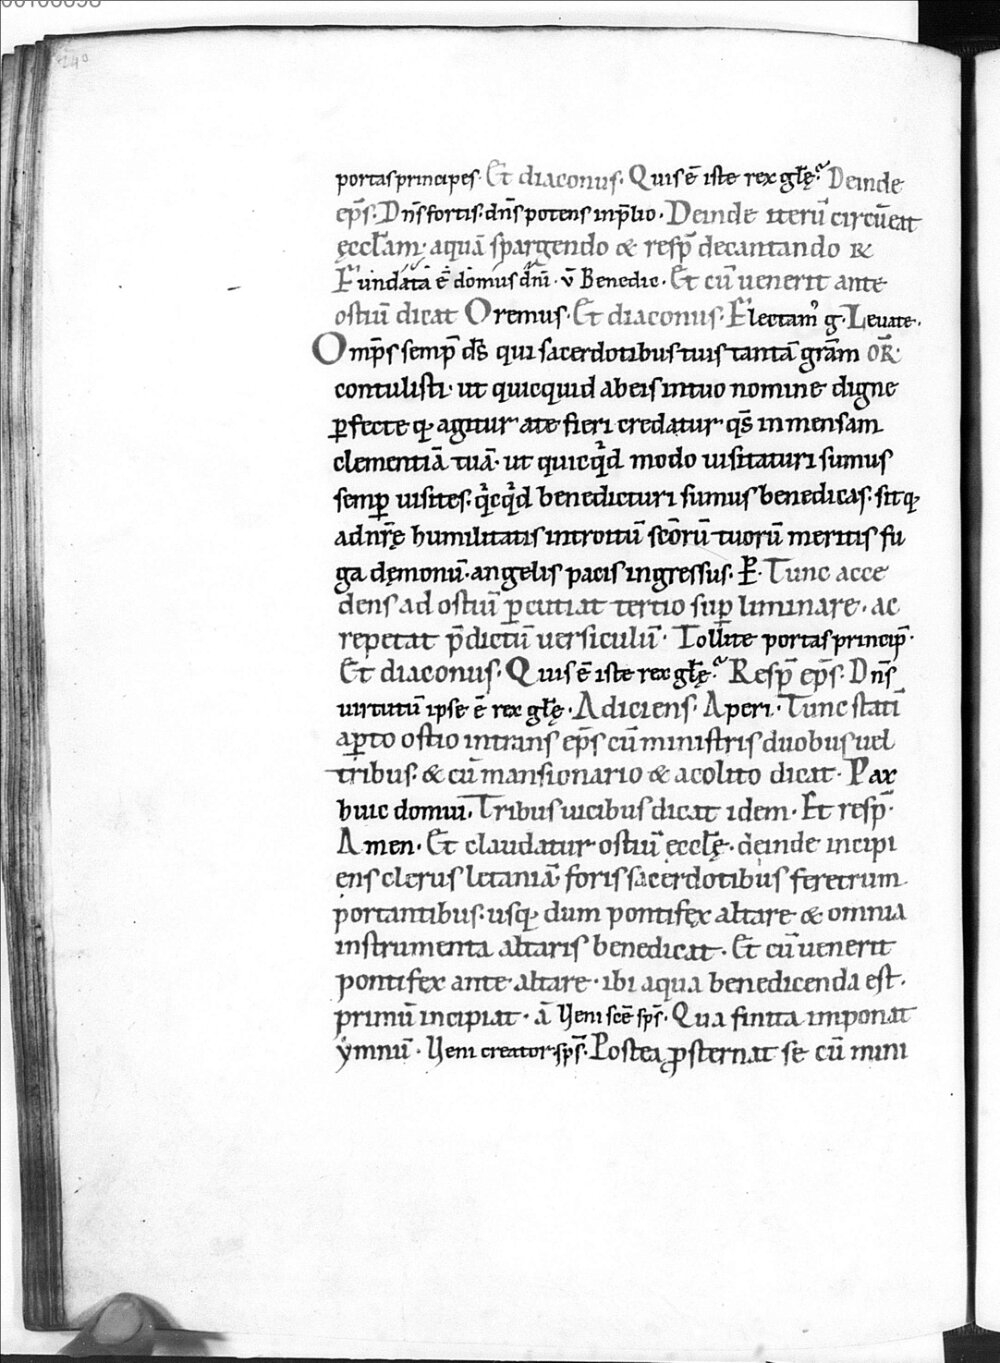 00100098
240
portas principes. Et diaconus. Quis ē iste rex glę̄? Deinde
ep̄s. Dn̄s fortis. dn̄s potens in p̄lio. Deinde iterū circūeat
ęccłam. aquā spargendo & resp̄ decantando R̷
Fundata ē domus dn̄i. v̄ Benedic. Et cū uenerit ante
ostiū dicat Oremus. Et diaconus. Flectam᷒ g. Leuate.
Omp̄s semp̄ ds̄ qui sacerdotibus tuis tantā grām OR̄.
contulisti. ut quicquid ab eis in tuo nomine digne
ꝑfecte q; agitur a te fieri credatur. qs̄ inmensam
clementiā tuā. ut quicqͥd modo uisitaturi sumus
semꝑ uisites. qͥcqͥd benedicturi sumus benedicas. sitq;
ad nr̄ę humilitatis introitū sc̄orū tuorū meritis fu
ga dęmonū. angelis pacis ingressus. P̄. Tunc acce
dens ad ostiū ꝑcutiat tertio suꝑ liminare. ac
repetat p̄dictū uersiculū. Tollite portas princip̄.
Et diaconus. Quis ē iste rex glę̄? Resp̄ ep̄s. Dn̄s
uirtutū ipse ē rex glę̄. Adiciens. Aperi. Tunc statī
aꝑto ostio intrans ep̄s cū ministris duobus uel
tribus. & cū mansionario & acolito dicat. Pax
huic domui. Tribus uicibus dicat idem. Et resp̄.
Amen. Et claudatur ostiū ęccłę. deinde incipi
ens clerus letaniā foris sacerdotibus feretrum
portantibus. usq; dum pontifęx altare & omnia
instrumenta altaris benedicat. Et cū uenerit
pontifęx ante altare. ibi aqua benedicenda est.
primū incipiat. ā Veni scē sp̄s. Qua finita imponat
ymnū. Veni creator sp̄s. Postea ꝓsternat se cū mini